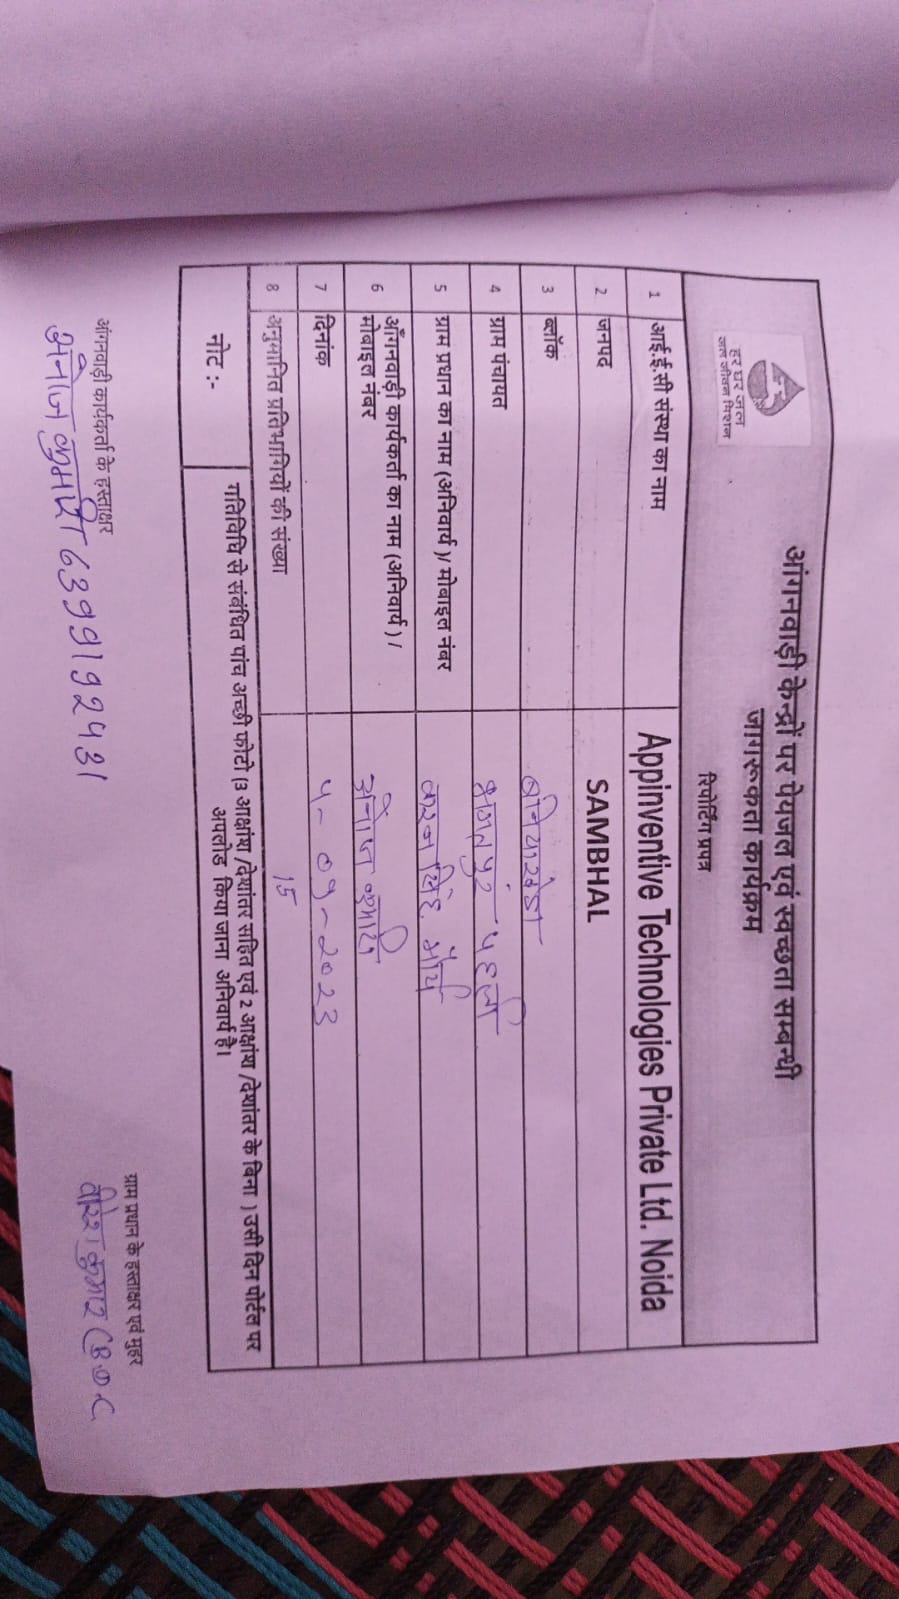 हर घर जल
जल जीवन मिशन
आंगनवाड़ी केन्द्रों पर पेयजल एवं स्वच्छता सम्बन्धी
जागरूकता कार्यक्रम
रिपोर्टिंग प्रपत्र
1 आई.ई.सी संस्था का नाम Appinventive Technologies Private Ltd. Noida
2 जनपद SAMBHAL
3 ब्लॉक बनियाखेडा
4 ग्राम पंचायत
5 ग्राम प्रधान का नाम (अनिवार्य)/ मोबाइल नंबर सिंह मौर्य
6 आँगनवाड़ी कार्यकर्ता का नाम (अनिवार्य) /
मोबाइल नंबर कुमारी
7 दिनांक 4-09-2023
8 अनुमानित प्रतिभागियों की संख्या 15
नोट :- गतिविधि से संबंधित पांच अच्छी फोटो (3 आक्षांश /देशांतर सहित एवं 2 आक्षांश /देशांतर के बिना ) उसी दिन पोर्टल पर
अपलोड किया जाना अनिवार्य है।
आंगनवाड़ी कार्यकर्ता के हस्ताक्षर
कुमारी
ग्राम प्रधान के हस्ताक्षर एवं मुहर
कुमार